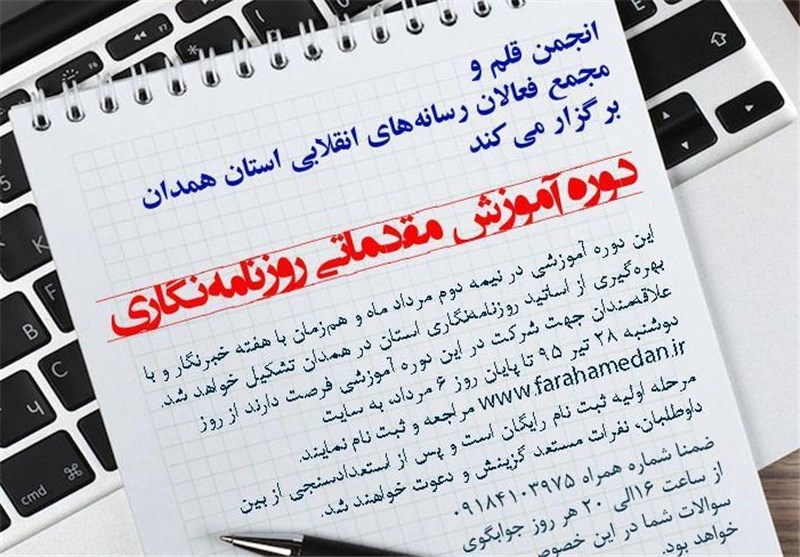 انجمن قلم و
مجمع فعالان رسانه‌های انقلابی استان همدان
برگزار می کند
دوره آموزش مقدماتی روزنامه‌نگاری
این دوره آموزشی در نیمه دوم مرداد ماه و هم‌زمان با هفته خبرنگار و با
بهره‌گیری از اساتید روزنامه‌نگاری استان در همدان تشکیل خواهد شد.
علاقه‌مندان جهت شرکت در این دوره آموزشی فرصت دارند از روز
دوشنبه ۲۸ تیر ۹۵ تا پایان روز ۶ مرداد، به سایت
www.farahamedan.ir مراجعه و ثبت نام نمایند.
مرحله اولیه ثبت نام رایگان است و پس از استعدادسنجی از بین
داوطلبان، نفرات مستعد گزینش و دعوت خواهند شد.
ضمنا شماره همراه ۰۹۱۸۴۱۰۳۹۷۵
از ساعت ۱۶الی ۲۰ هر روز جوابگوی
سوالات شما در این خصوص
خواهد بود.
5
K
B
N
cmd
⌘
F7